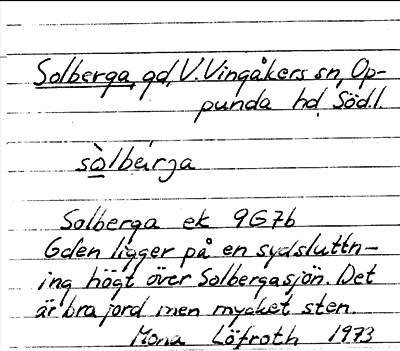 Solberga, gd, V. Vingåkers sn, Op-
punda hd, Södl.
sòlbárja
Solberga ek 9G7b
Gden ligger på en sydsluttn-
ing högt över Solbergasjön. Det
är bra jord men mycket sten.
Mona Löfroth 1973